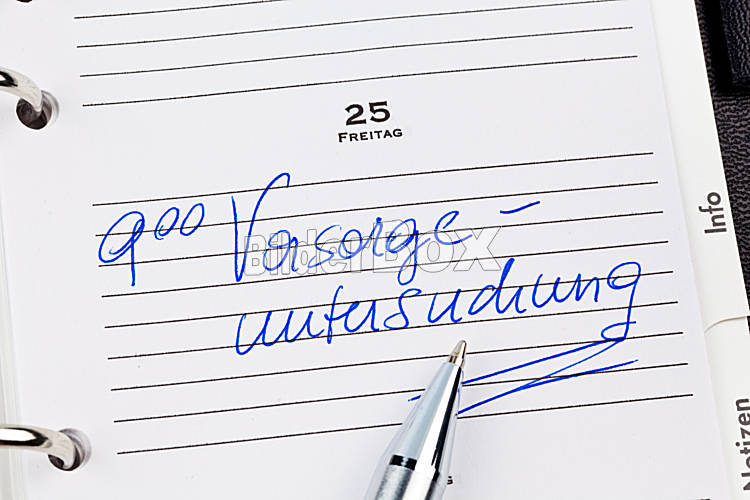 25
FREITAG
9⁰⁰ Vorsorge-
untersuchung
BilderBOX
Info
Notizen